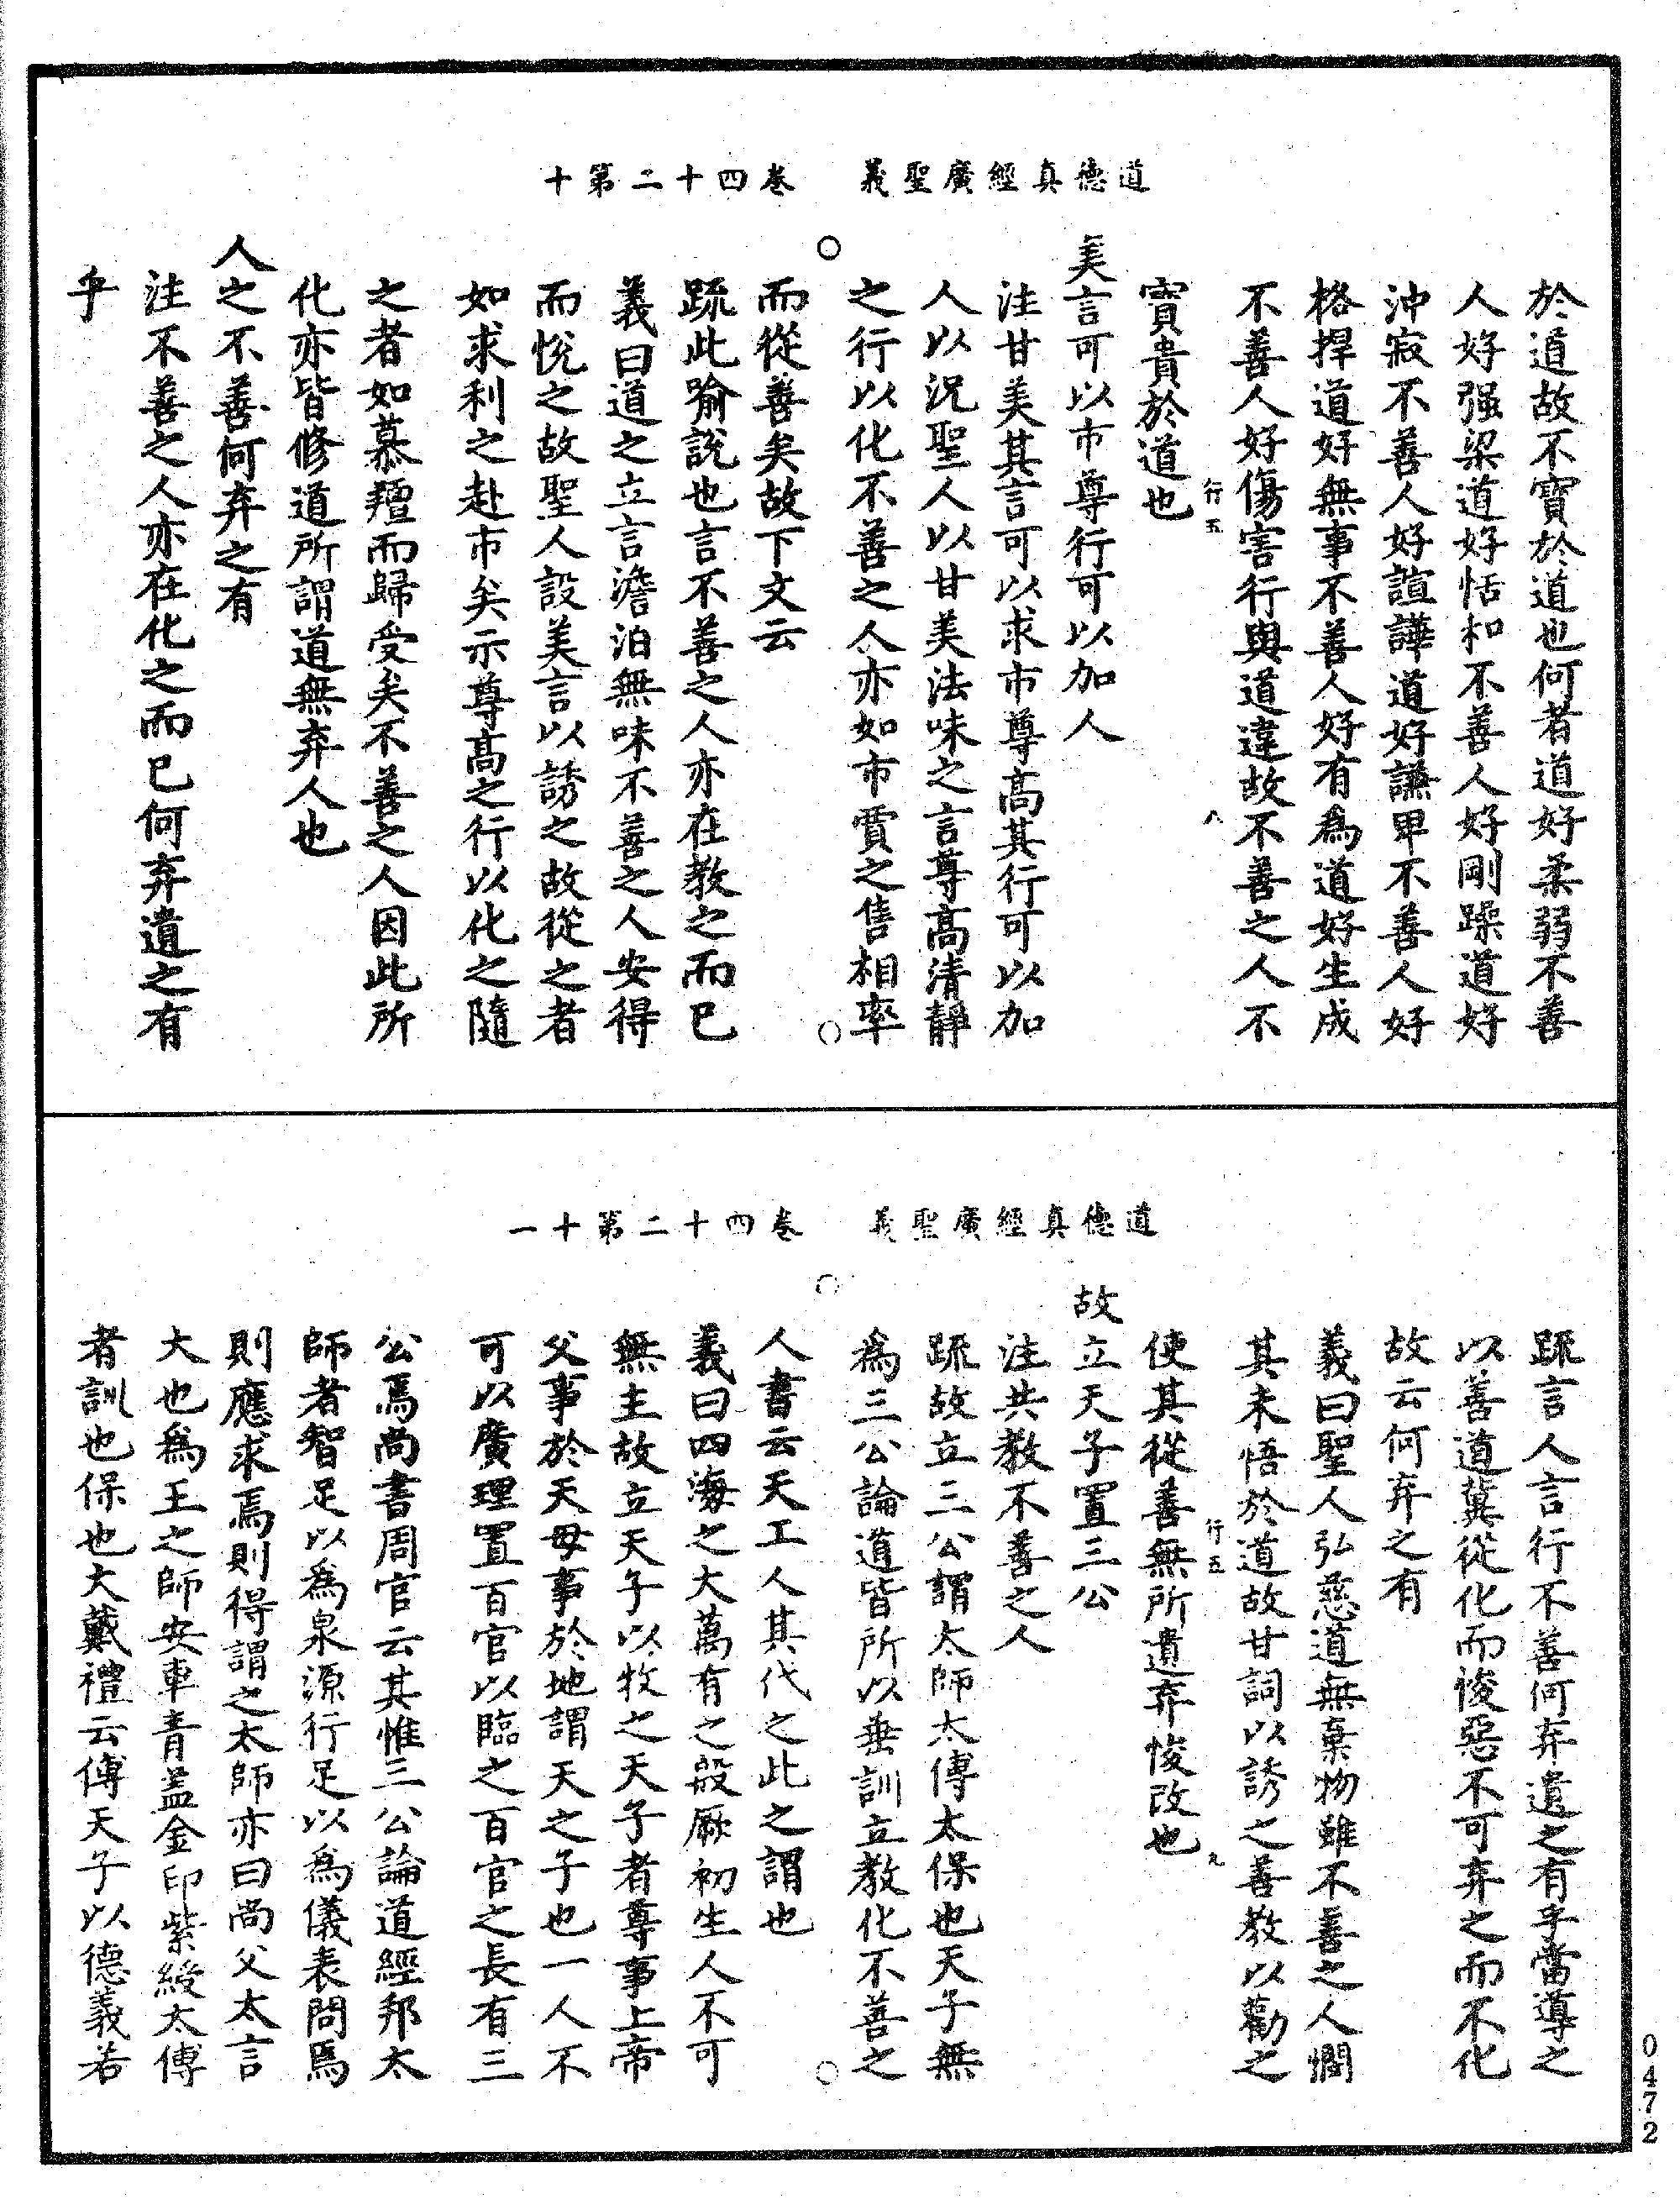 道德真經廣聖義　卷四十二第十
於道故不寶於道也何者道好柔弱不善
人好强梁道好恬和不善人好剛躁道好
沖寂不善人好諠譁道好謙卑不善人好
格捍道好無事不善人好有爲道好生成
不善人好傷害行與道違故不善之人不
行五　八
寶貴於道也
美言可以市尊行可以加人
注甘美其言可以求市尊高其行可以加
人以況聖人以甘美法味之言尊高清靜
之行以化不善之人亦如市賈之售相率
而從善矣故下文云
疏此喻說也言不善之人亦在教之而已
義曰道之立言澹泊無味不善之人安得
而悅之故聖人設美言以誘之故從之者
如求利之赴市矣示尊高之行以化之隨
之者如慕羶而歸受矣不善之人因此所
化亦皆修道所謂道無弃人也
人之不善何弃之有
注不善之人亦在化之而已何弃遺之有
乎
道德真經廣聖義　卷四十二第十一
疏言人言行不善何弃遺之有乎當導之
以善道冀從化而悛惡不可弃之而不化
故云何弃之有
義曰聖人弘慈道無棄物雖不善之人憫
其未悟於道故甘詞以誘之善教以勸之
行五　九
使其從善無所遺弃悛改也
故立天子置三公
注共教不善之人
疏故立三公謂太師太傅太保也天子無
爲三公論道皆所以垂訓立教化不善之
人書云天工人其代之此之謂也
義曰四海之大萬有之殷厥初生人不可
無主故立天子以牧之天子者尊事上帝
父事於天母事於地謂天之子也一人不
可以廣理置百官以臨之百官之長有三
公焉尚書周官云其惟三公論道經邦太
師者智足以爲泉源行足以爲儀表問焉
則應求焉則得謂之太師亦曰尚父太言
大也爲王之師安車青盖金印紫綬太傅
者訓也保也大戴禮云傅天子以德義若
0472